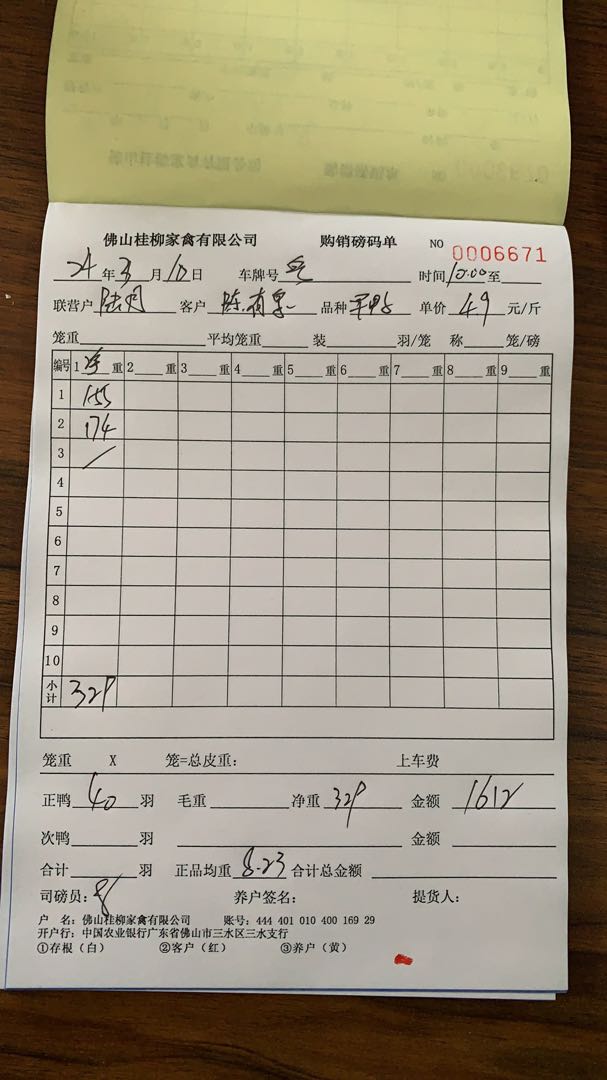 佛山桂柳家禽有限公司 购销磅码单 NO 0006671
24年3月10日 车牌号 时间10:00至
联营户 客户 陈有 品种 单价 4.9 元/斤
笼重 平均笼重 装 羽/笼 称 笼/磅
编号 1 净 重 2 重 3 重 4 重 5 重 6 重 7 重 8 重 9 重
1 155
2 174
3 /
4
5
6
7
8
9
10
小计 329
笼重 X 笼=总皮重: 上车费
正鸭 40 羽 毛重 净重 329 金额 1612
次鸭 羽 金额
合计 羽 正品均重 8.23 合计总金额
司磅员: 养户签名: 提货人:
户 名: 佛山桂柳家禽有限公司 账号: 444 401 010 400 169 29
开户行: 中国农业银行广东省佛山市三水区三水支行
①存根（白） ②客户（红） ③养户（黄）